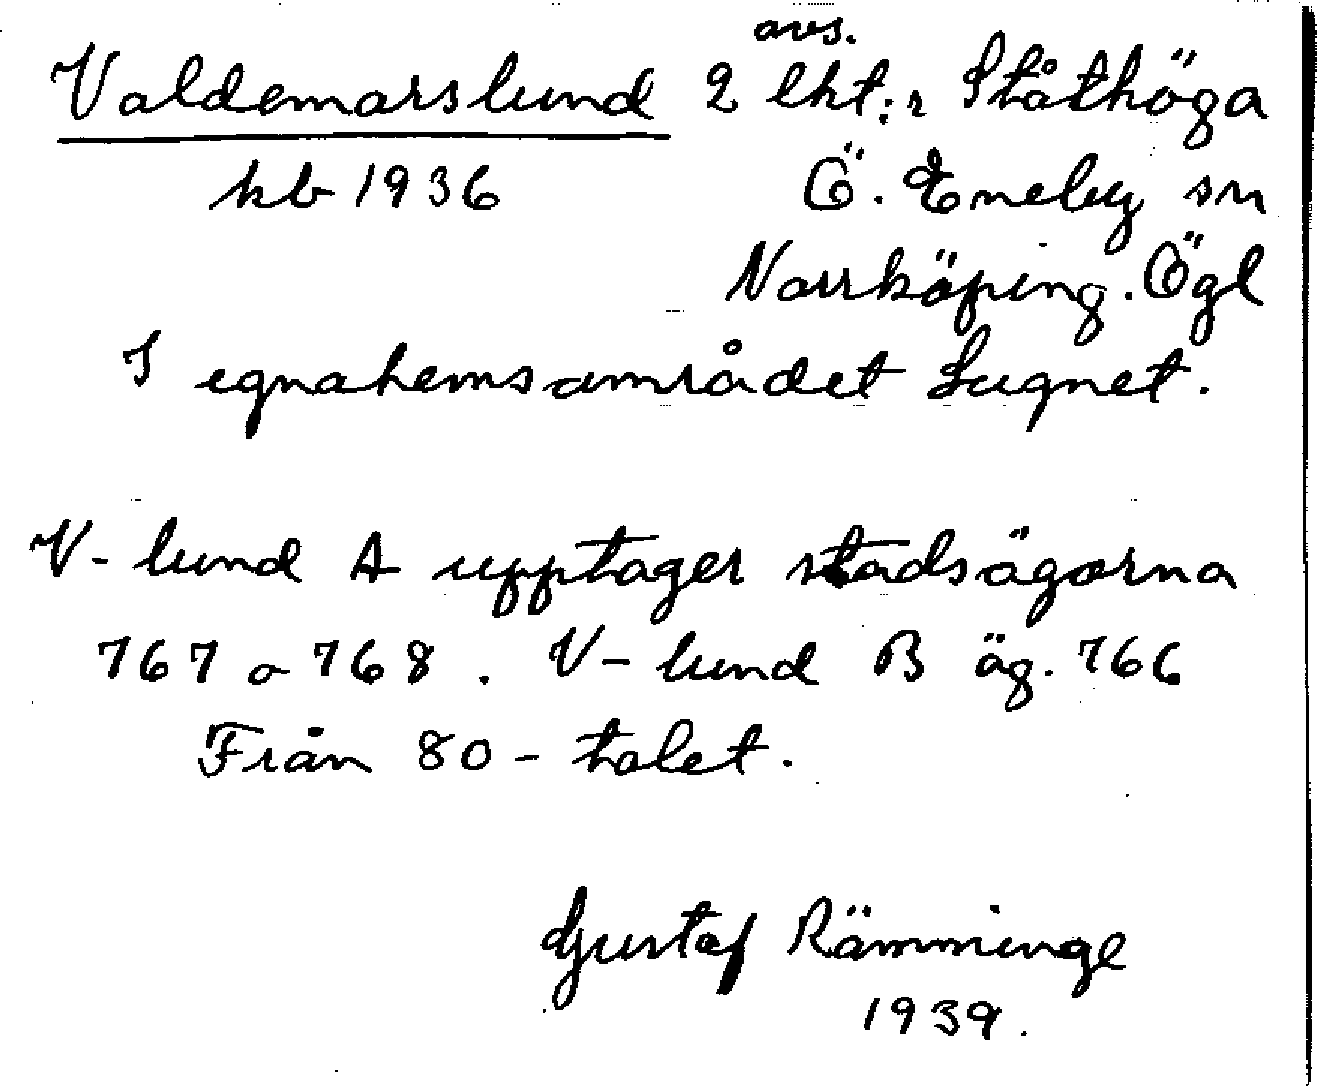 avs.
Valdemarslund 2 lht:r Ståthöga
kb 1936 Ö. Eneby sn
Norrköping. Ögl
I egnahemsområdet Lugnet.
V-lund A upptager stadsägorna
767 o 768. V-lund B äg. 766
Från 80-talet.
Gustaf Rämminge
1939.